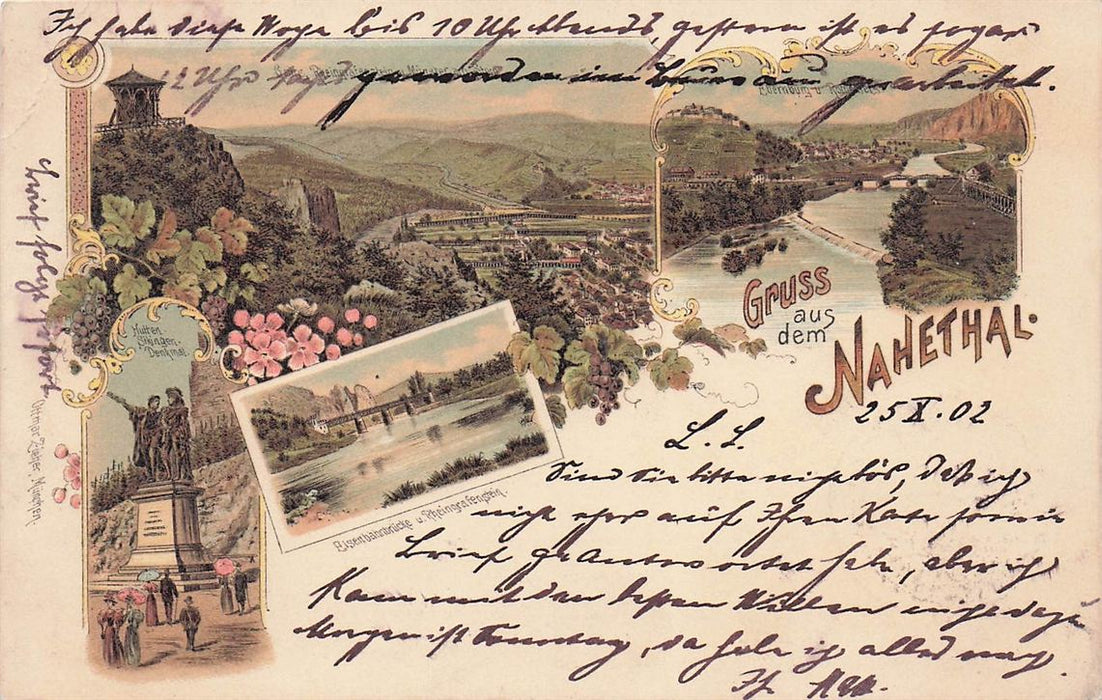 Ich habe diese Woche bis 10 Uhr Abends, gestern ist es sogar
12 Uhr geworden im Bureau gearbeitet.
Rheingrafenstein, Münster
Ebernburg u.
Brief folgt sofort
Hutten
Sikingen-
Denkmal.
Ottmar Zieher, München.
Eisenbahnbrücke u. Rheingrafenstein.
GRUSS
aus
dem
NAHETHAL.
25 X. 02
L. L.
Sind Sie bitte nicht bös, daß ich
nicht eher auf Ihren Karte sowie
Brief geantwortet habe, aber ich
kann mit dem besten Willen
Morgen ist Sonntag, da hole ich alles nach.
Ihr